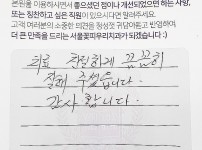 본원을 이용하시면서 좋으셨던 점이나 개선되었으면 하는 사항,
또는 칭찬하고 싶은 직원이 있으시다면 알려주세요.
고객 여러분의 소중한 의견을 정성껏 귀담아듣고 반영하여,
더 큰 만족을 드리는 서울꽃피우리치과가 되겠습니다 :)
치료 친절하게 꼼꼼히
잘해 주셨습니다.
감사합니다.